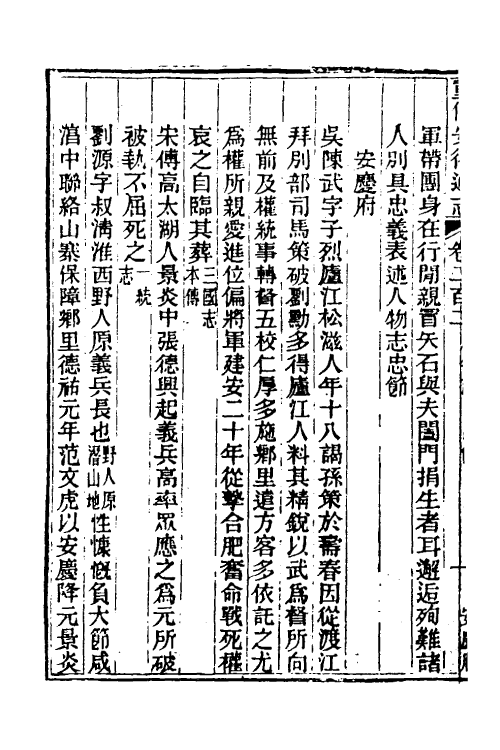 重修安徽通志 卷二百二
軍帶團身在行閒親冒矢石與夫闔門捐生者耳邂逅殉難諸
人別具忠義表述人物志忠節
安慶府
吳陳武字子烈廬江松滋人年十八謁孫策於壽春因從渡江
拜別部司馬策破劉勳多得廬江人料其精銳以武爲督所向
無前及權統事轉督五校仁厚多施鄉里遠方客多依託之尤
爲權所親愛進位偏將軍建安二十年從擊合肥奮命戰死權
哀之自臨其葬三國志本傳
宋傅高太湖人景炎中張德興起義兵高率眾應之爲元所破
被執不屈死之一統志
劉源字叔淸淮西野人原義兵長也野人原潛山地性慷慨負大節咸
淳中聯絡山寨保障鄉里德祐元年范文虎以安慶降元景炎